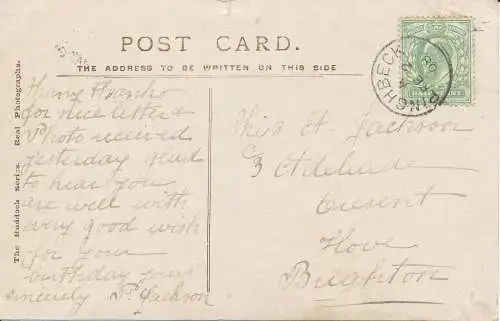 POST CARD.
THE ADDRESS TO BE WRITTEN ON THIS SIDE
The Ruddock Series. Real Photographs.
Many thanks
for nice letter &
Photo received
yesterday glad
to hear you
are well with
very good wish
for your
birthday yours
sincerely P. Jackson
Miss H. Jackson
3 Adelaide
Cresent
Hove
Brighton
HBECK